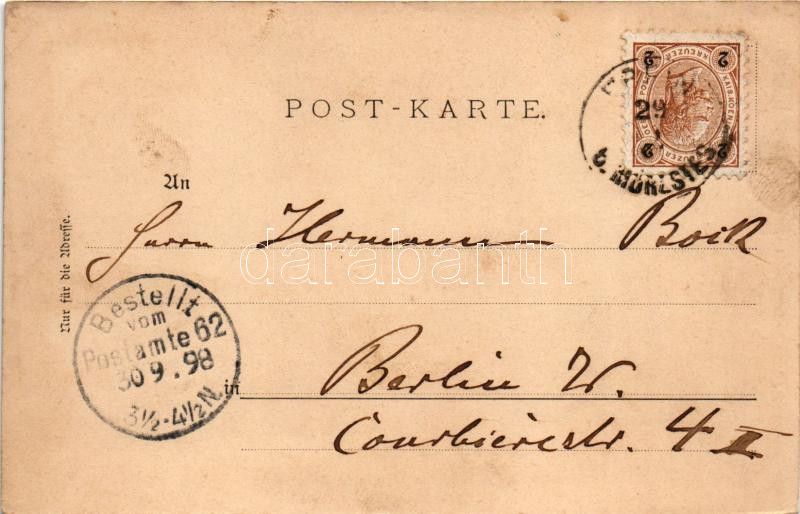 POST-KARTE.
2 2
KREUZER
29
2 2
b. MÜRZSTEG
An
Nur für die Adresse.
Herrn Hermann Bock
darabanth
Bestellt
vom
Postamte 62
30 9 . 98
3½-4½N.
in Berlin W.
Courbièrestr. 4 II